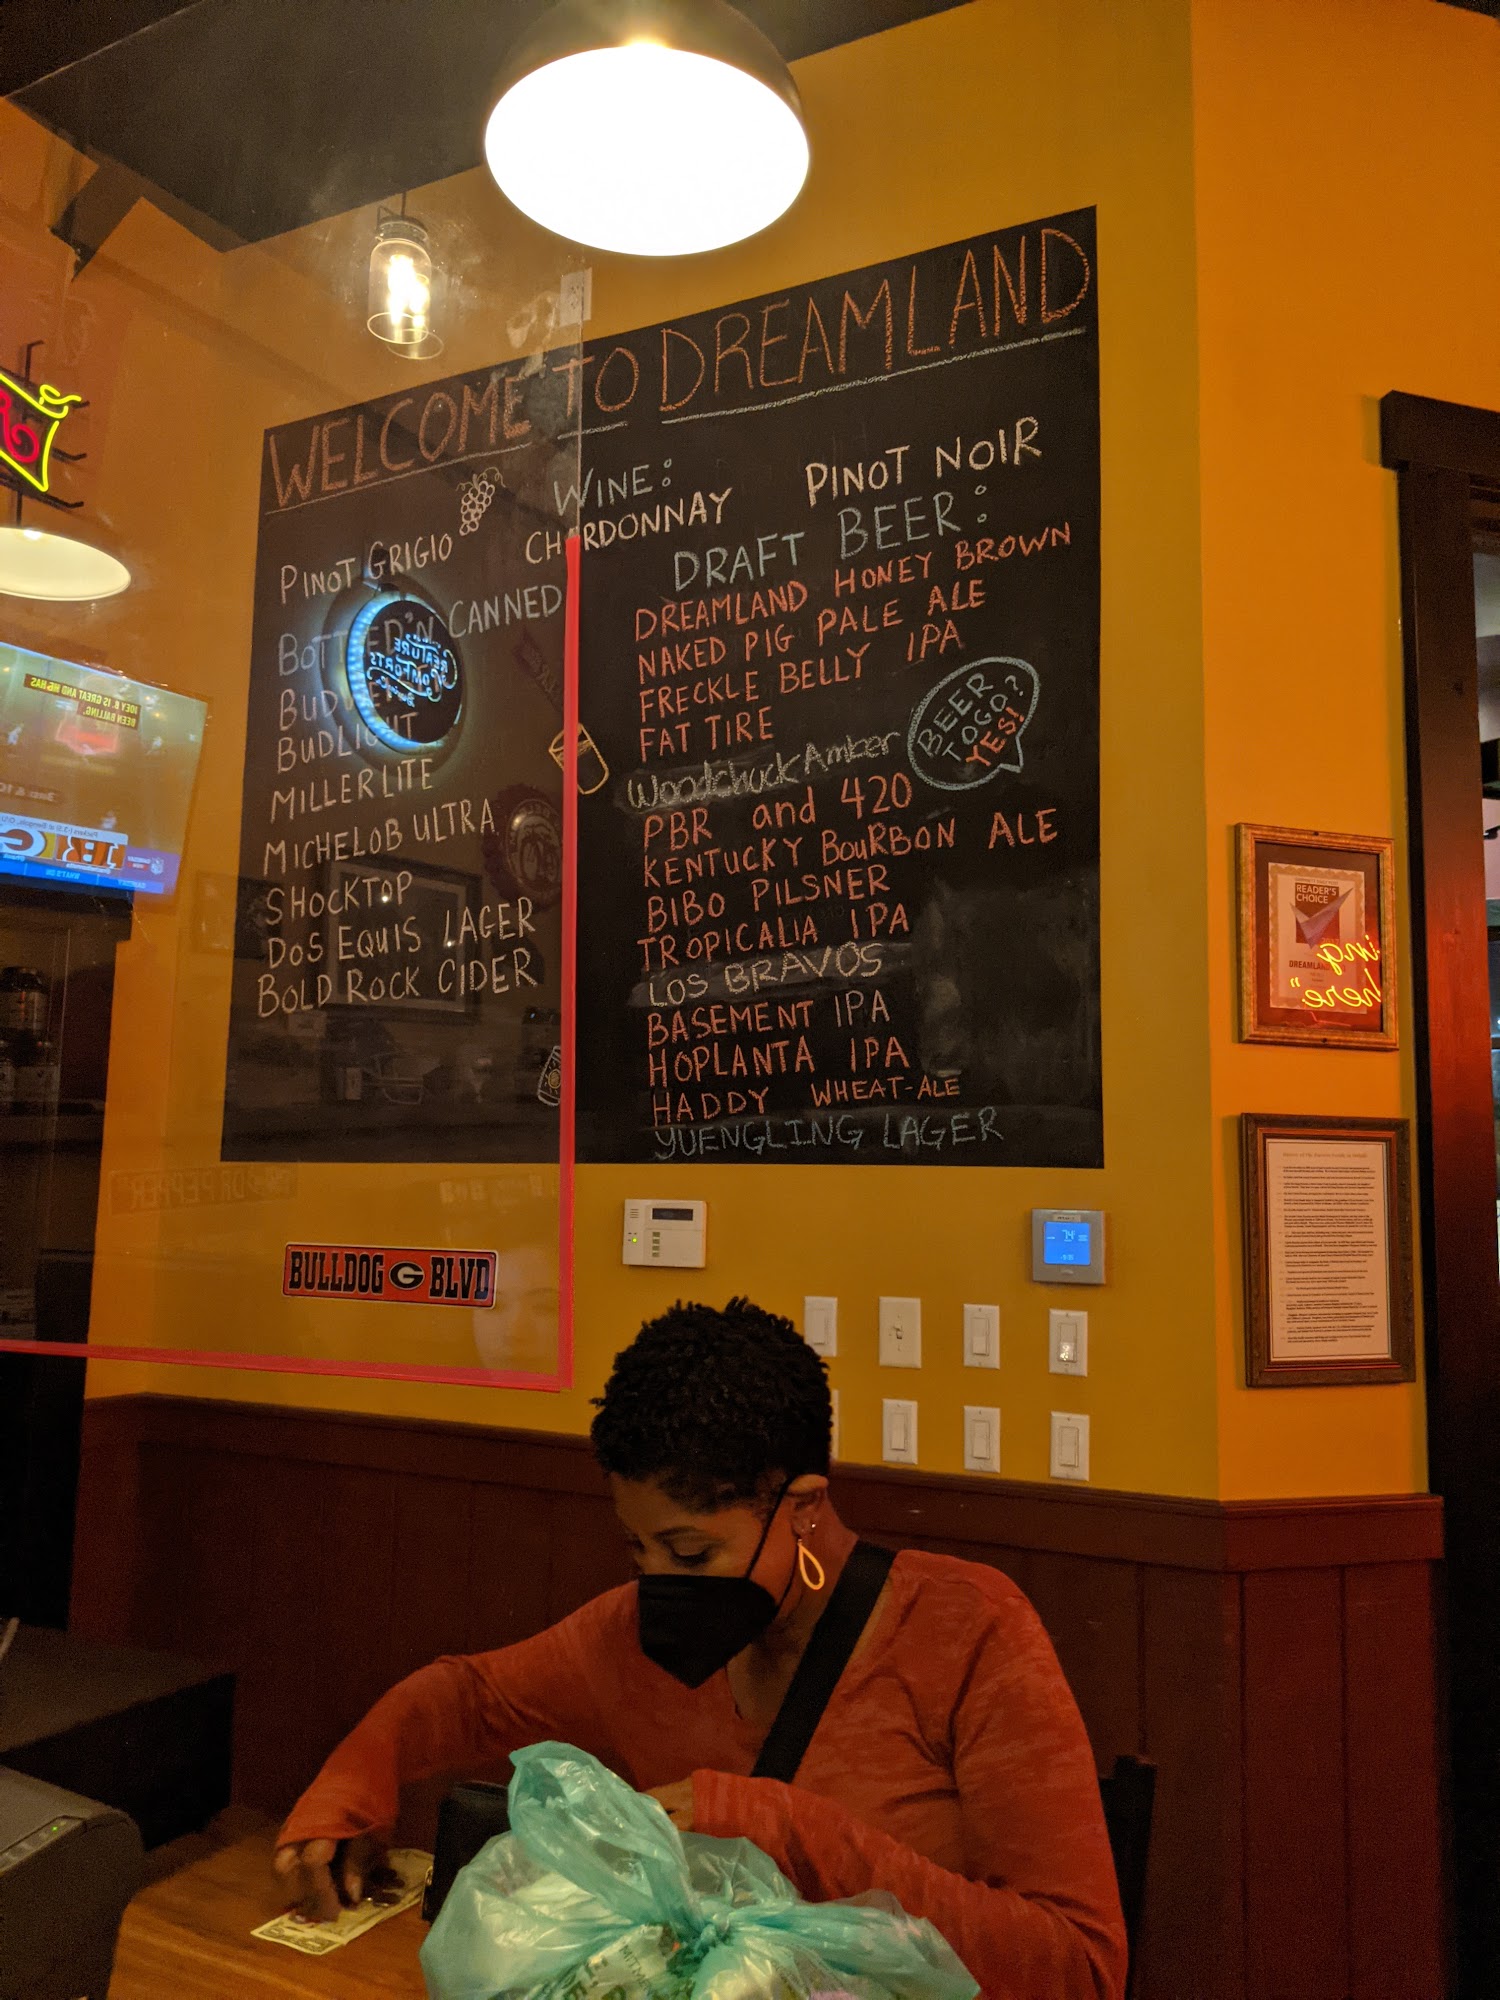 WELCOME TO DREAMLAND
WINE:
PINOT GRIGIO CHARDONNAY PINOT NOIR
BOTTLED 'N CANNED
BUDWEI
BUDLIGHT
MILLER LITE
MICHELOB ULTRA
SHOCKTOP
DOS EQUIS LAGER
BOLD ROCK CIDER
DRAFT BEER:
DREAMLAND HONEY BROWN
NAKED PIG PALE ALE
FRECKLE BELLY IPA
FAT TIRE
Woodchuck Amber
PBR and 420
KENTUCKY BOuRBON ALE
BIBO PILSNER
TROPICALIA IPA
LOS BRAVOS
BASEMENT IPA
HOPLANTA IPA
HADDY WHEAT-ALE
YUENGLING LAGER
BEER
TOGO?
YES!
CREATURE
COMFORTS
JOEY B. IS GREAT AND HE HAS
BEEN BALLING.
WHAT'S ON
DR PEPPER
BULLDOG G BLVD
READER'S
CHOICE
DREAMLAND
ing
here"
74